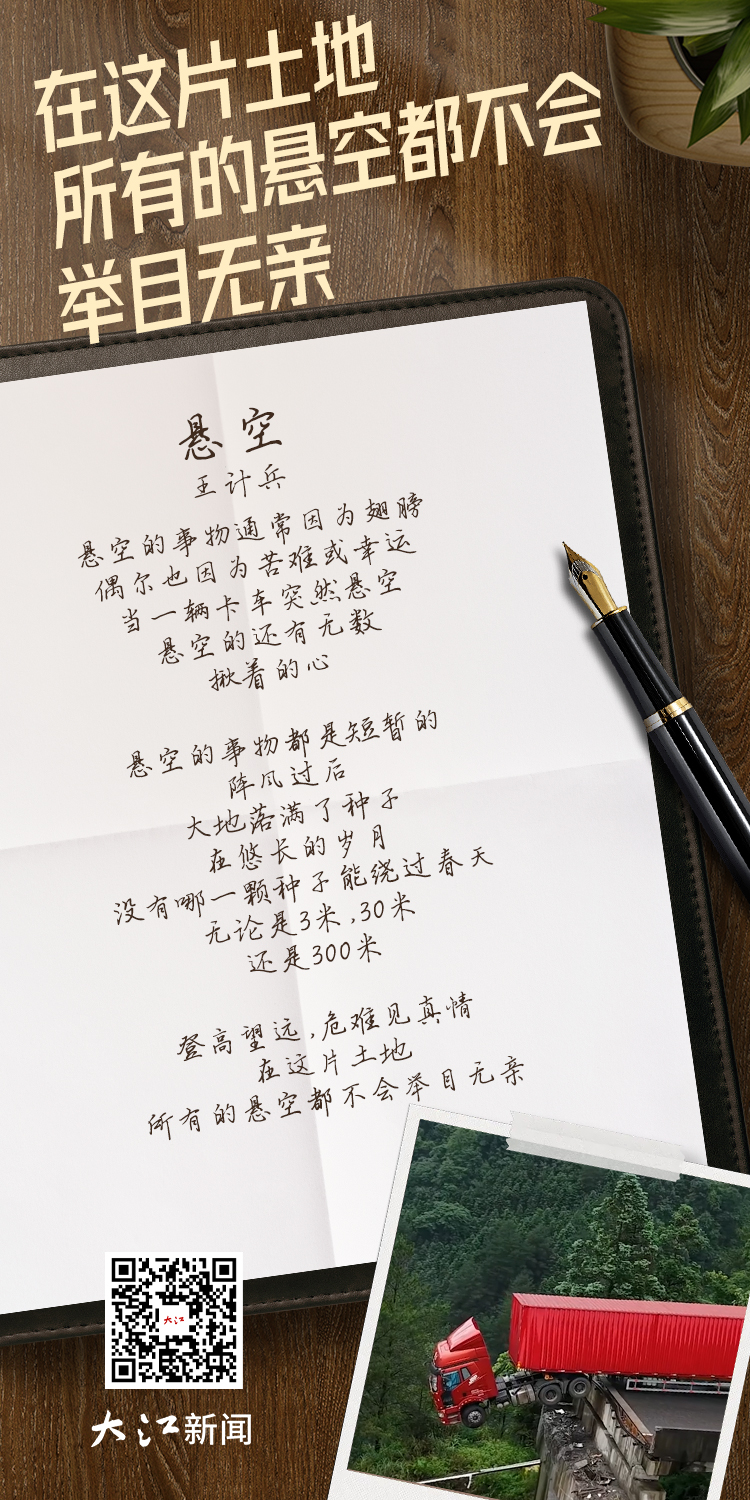 在这片土地
所有的悬空都不会
举目无亲
悬空
王计兵
悬空的事物通常因为翅膀
偶尔也因为苦难或幸运
当一辆卡车突然悬空
悬空的还有无数
揪着的心
悬空的事物都是短暂的
阵风过后
大地落满了种子
在悠长的岁月
没有哪一颗种子能绕过春天
无论是3米,30米
还是300米
登高望远,危难见真情
在这片土地
所有的悬空都不会举目无亲
大江
大江新闻